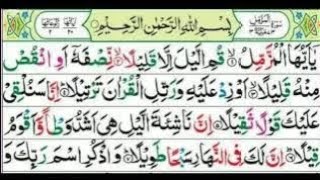 بِسْمِ اللهِ الرَّحْمٰنِ الرَّحِيْمِ
يٰٓاَيُّهَا الْمُزَّمِّلُ قُمِ الَّيْلَ اِلَّا قَلِيْلًا نِّصْفَهٗٓ اَوِ انْقُصْ
مِنْهُ قَلِيْلًا اَوْ زِدْ عَلَيْهِ وَرَتِّلِ الْقُرْاٰنَ تَرْتِيْلًا اِنَّا سَنُلْقِيْ
عَلَيْكَ قَوْلًا ثَقِيْلًا اِنَّ نَاشِئَةَ الَّيْلِ هِيَ اَشَدُّ وَطْاً وَّاَقْوَمُ
قِيْلًا اِنَّ لَكَ فِي النَّهَارِ سَبْحًا طَوِيْلًا وَاذْكُرِ اسْمَ رَبِّكَ وَ